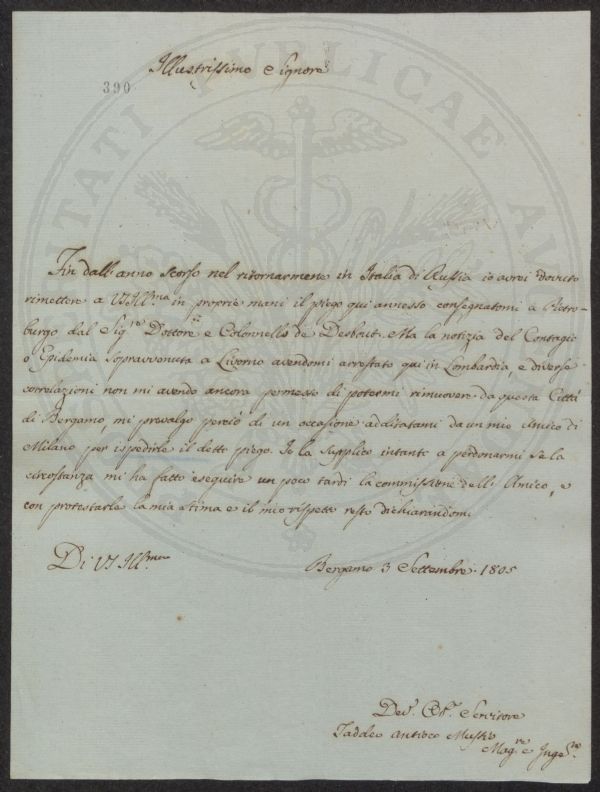 Illustrissimo Signore
390
Fin dall'anno scorso nel ritornarmene in Italia di Russia io avrei dovuto
rimettere a VS Ill.ma in proprie mani il piego qui annesso consegnatomi a Pietro-
burgo dal Sig.re Dottore e Colonnello de Desbout. Ma la notizia del Contagio
o Epidemia sopravvenuta a Livorno avendomi arrestato qui in Lombardia, e diverse
correlazioni non mi avendo ancora permesso di potermi rimuovere da questa Città
di Bergamo, mi prevalgo perciò di un occasione additatami da un mio Amico di
Milano per ispedirle il detto piego. Io la supplico intanto a perdonarmi se la
circostanza mi ha fatto eseguire un poco tardi la commissione dell'Amico, e
con protestarle la mia stima e il mio rispetto resto dichiarandomi
Di VS Ill.ma
Bergamo 3 Settembre 1805
Dev. Obb. Servitore
Taddeo Antioco
Mag.re e Ing.re